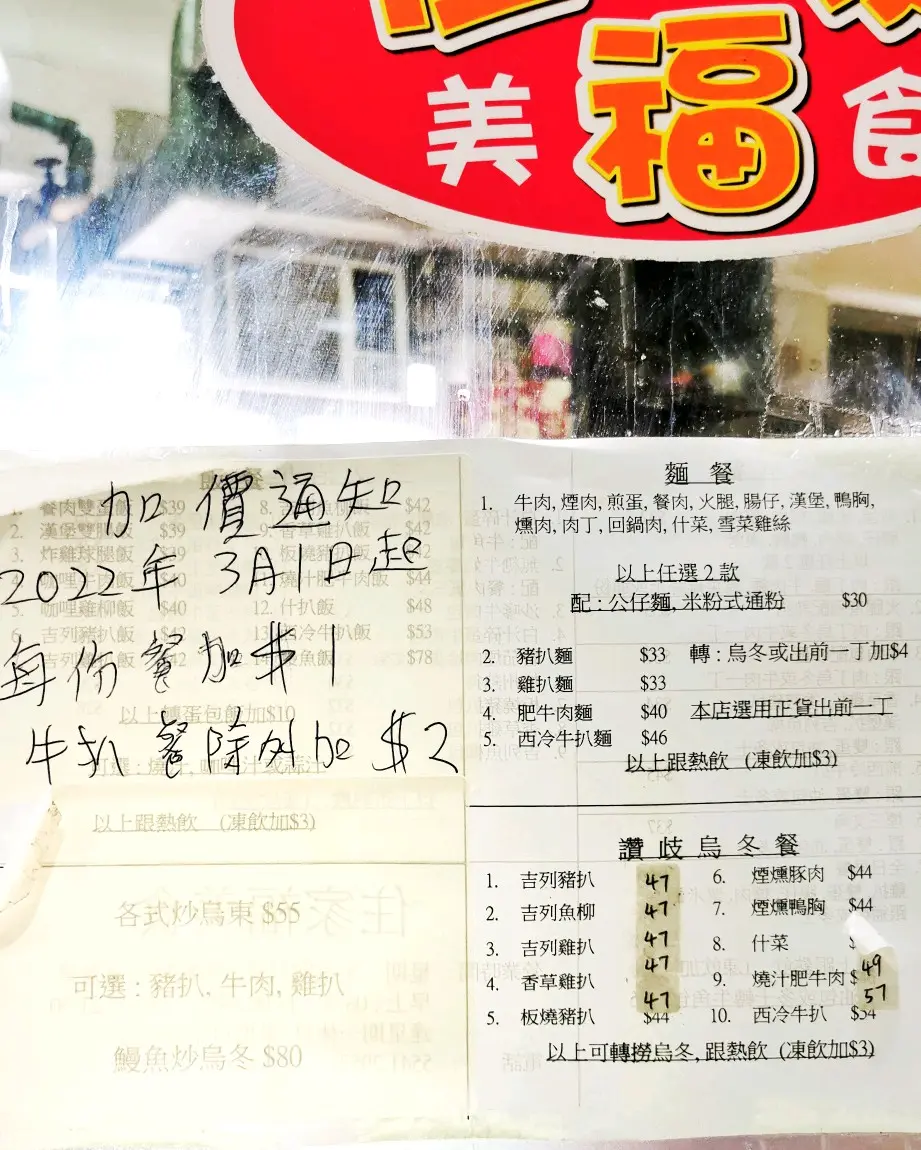 福
美 食
加價通知
2022年 3月1日起
每份餐加$1
牛扒餐除外加$2
1. 餐肉雙 飯 $39
2. 漢堡雙 飯 $39
3. 炸雞球腿飯 $39
5. 咖哩雞柳飯 $40
6. 吉列豬扒飯 $42
吉列 $42
8. $42
$42
板燒豬扒飯 $42
燒汁肥牛肉飯 $44
12. 什扒飯 $48
13. 西冷牛扒飯 $53
14. 鰻魚飯 $78
以上轉蛋包飯加$10
可選:燒汁, 咖哩汁或蒜汁
以上跟熱飲 (凍飲加$3)
各式炒烏東 $55
可選:豬扒. 牛肉, 雞扒
鰻魚炒烏冬 $80
麵 餐
1. 牛肉, 煙肉, 煎蛋, 餐肉, 火腿, 腸仔, 漢堡, 鴨胸,
燻肉, 肉丁, 回鍋肉, 什菜, 雪菜雞絲
以上任選2款
配:公仔麵, 米粉式通粉 $30
2. 豬扒麵 $33 轉:烏冬或出前一丁加$4
3. 雞扒麵 $33
4. 肥牛肉麵 $40 本店選用正貨出前一丁
5. 西冷牛扒麵 $46
以上跟熱飲 (凍飲加$3)
讚岐烏冬餐
1. 吉列豬扒 47 6. 煙燻豚肉 $44
2. 吉列魚柳 47 7. 煙燻鴨胸 $44
3. 吉列雞扒 47 8. 什菜 $
4. 香草雞扒 47 9. 燒汁肥牛肉 $49
5. 板燒豬扒 47 $44 10. 西冷牛扒 57 $54
以上可轉撈烏冬, 跟熱飲 (凍飲加$3)